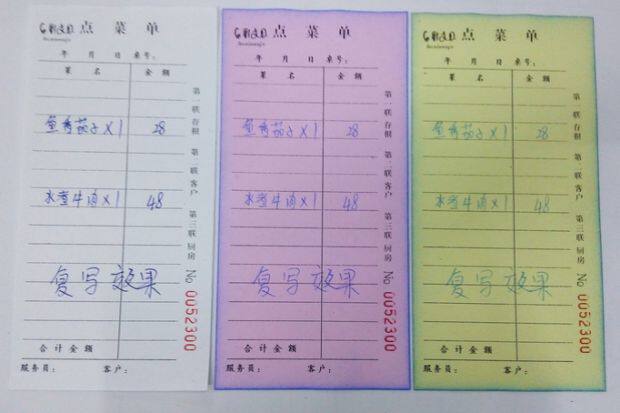 点菜单
年 月 日 桌号:
菜 名 金 额
鱼香茄子×1 28
水煮牛肉×1 48
复写效果
合计金额
服务员: 客户:
第一联存根 第二联客户 第三联厨房 No 0052300
点菜单
年 月 日 桌号:
菜 名 金 额
鱼香茄子×1 28
水煮牛肉×1 48
复写效果
合计金额
服务员: 客户:
第一联存根 第二联客户 第三联厨房 No 0052300
点菜单
年 月 日 桌号:
菜 名 金 额
鱼香茄子×1 28
水煮牛肉×1 48
复写效果
合计金额
服务员: 客户:
第一联存根 第二联客户 第三联厨房 No 0052300